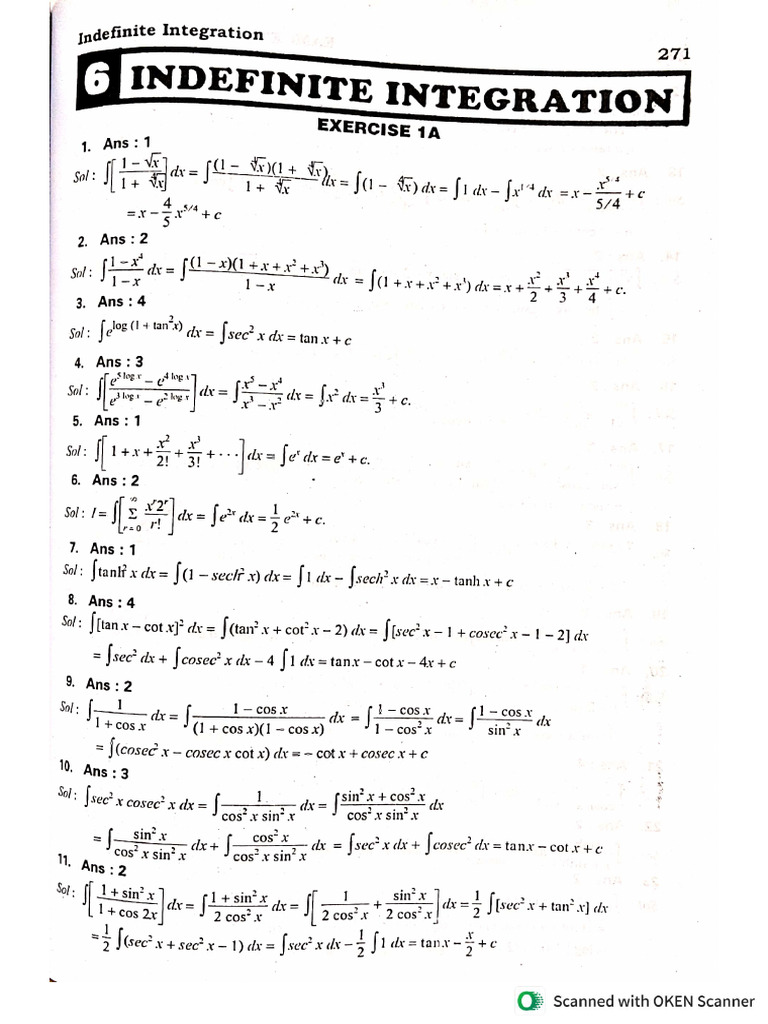 Indefinite Integration
271
6 INDEFINITE INTEGRATION
EXERCISE 1A
1. Ans : 1
Sol : ∫[(1 − √x)/(1 + ∜x)] dx = ∫((1 − ∜x)(1 + ∜x))/(1 + ∜x) dx = ∫(1 − ∜x) dx = ∫1 dx − ∫x^(1/4) dx = x − x^(5/4)/(5/4) + c
= x − 4/5 x^(5/4) + c
2. Ans : 2
Sol : ∫(1 − x⁴)/(1 − x) dx = ∫((1 − x)(1 + x + x² + x³))/(1 − x) dx = ∫(1 + x + x² + x³) dx = x + x²/2 + x³/3 + x⁴/4 + c.
3. Ans : 4
Sol : ∫e^(log (1 + tan²x)) dx = ∫sec² x dx = tan x + c
4. Ans : 3
Sol : ∫[(e^(5 log x) − e^(4 log x))/(e^(3 log x) − e^(2 log x))] dx = ∫(x⁵ − x⁴)/(x³ − x²) dx = ∫x² dx = x³/3 + c.
5. Ans : 1
Sol : ∫[1 + x + x²/2! + x³/3! + · · ·] dx = ∫eˣ dx = eˣ + c.
6. Ans : 2
Sol : I = ∫[Σ_(r = 0)^∞ (xʳ2ʳ)/r!] dx = ∫e^(2x) dx = 1/2 e^(2x) + c.
7. Ans : 1
Sol : ∫tanh² x dx = ∫(1 − sech² x) dx = ∫1 dx − ∫sech² x dx = x − tanh x + c
8. Ans : 4
Sol : ∫[tan x − cot x]² dx = ∫(tan² x + cot² x − 2) dx = ∫[sec² x − 1 + cosec² x − 1 − 2] dx
= ∫sec² dx + ∫cosec² x dx − 4 ∫1 dx = tan x − cot x − 4x + c
9. Ans : 2
Sol : ∫1/(1 + cos x) dx = ∫(1 − cos x)/((1 + cos x)(1 − cos x)) dx = ∫(1 − cos x)/(1 − cos² x) dx = ∫(1 − cos x)/(sin² x) dx
= ∫(cosec² x − cosec x cot x) dx = − cot x + cosec x + c
10. Ans : 3
Sol : ∫sec² x cosec² x dx = ∫1/(cos² x sin² x) dx = ∫(sin² x + cos² x)/(cos² x sin² x) dx
= ∫(sin² x)/(cos² x sin² x) dx + ∫(cos² x)/(cos² x sin² x) dx = ∫sec² x dx + ∫cosec² dx = tan x − cot x + c
11. Ans : 2
Sol : ∫[(1 + sin² x)/(1 + cos 2x)] dx = ∫(1 + sin² x)/(2 cos² x) dx = ∫[1/(2 cos² x) + (sin² x)/(2 cos² x)] dx = 1/2 ∫[sec² x + tan² x] dx
= 1/2 ∫(sec² x + sec² x − 1) dx = ∫sec² x dx − 1/2 ∫1 dx = tan x − x/2 + c
Scanned with OKEN Scanner